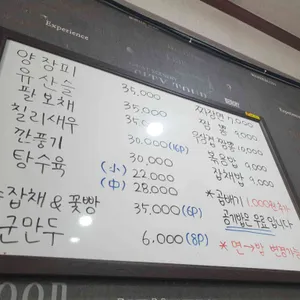 Experience
양장피
유산슬 35,000
팔보채 35,000
칠리새우 35,000
깐풍기 30,000(16P)
탕수육 30,000
(小) 22,000
(中) 28,000
잡채 & 꽃빵 35,000(6P)
군만두 6,000(8P)
짜장면 7,000
짬뽕 9,000
우삼겹 짬뽕 10,000
볶음밥 9,000
잡채밥 9,000
*곱빼기 1,000원 추가
공기밥은 무료입니다
*면→밥 변경가능